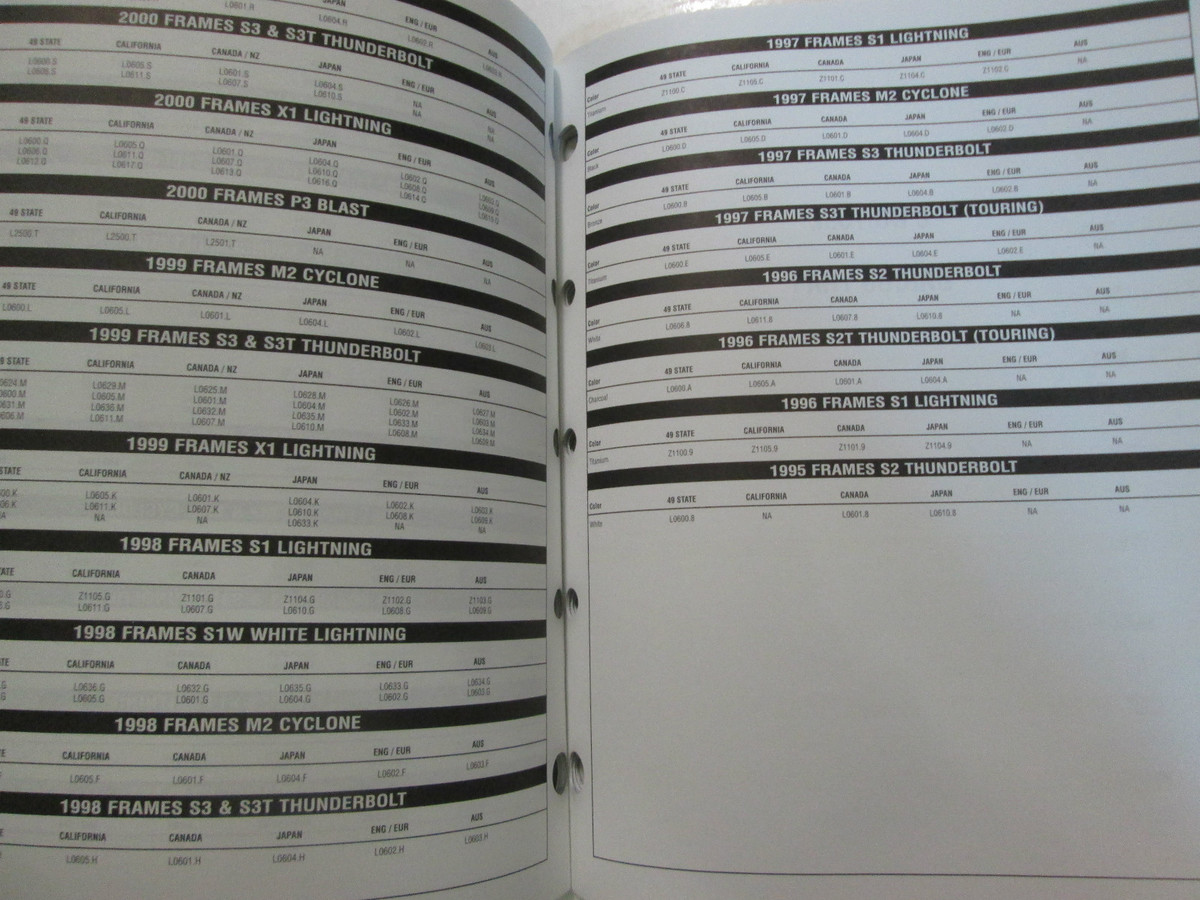 L0601.R
JAPAN
L0604.R
ENG / EUR
L0602.R
AUS
2000 FRAMES S3 & S3T THUNDERBOLT
49 STATE CALIFORNIA CANADA / NZ JAPAN ENG / EUR AUS
L0600.S L0605.S L0601.S L0604.S NA NA
L0606.S L0611.S L0607.S L0610.S NA NA
2000 FRAMES X1 LIGHTNING
49 STATE CALIFORNIA CANADA / NZ JAPAN ENG / EUR AUS
L0600.Q L0605.Q L0601.Q L0604.Q L0602.Q L0603.Q
L0606.Q L0611.Q L0607.Q L0610.Q L0608.Q L0609.Q
L0612.Q L0617.Q L0613.Q L0616.Q L0614.Q
2000 FRAMES P3 BLAST
49 STATE CALIFORNIA CANADA / NZ JAPAN ENG / EUR AUS
L2500.T L2500.T L2501.T NA NA NA
1999 FRAMES M2 CYCLONE
49 STATE CALIFORNIA CANADA / NZ JAPAN ENG / EUR AUS
L0600.L L0605.L L0601.L L0604.L L0602.L L0603.L
1999 FRAMES S3 & S3T THUNDERBOLT
49 STATE CALIFORNIA CANADA / NZ JAPAN ENG / EUR AUS
0624.M L0629.M L0625.M L0628.M L0626.M L0627.M
0600.M L0605.M L0601.M L0604.M L0602.M L0603.M
0631.M L0636.M L0632.M L0635.M L0633.M L0634.M
0606.M L0611.M L0607.M L0610.M L0608.M L0609.M
1999 FRAMES X1 LIGHTNING
STATE CALIFORNIA CANADA / NZ JAPAN ENG / EUR AUS
00.K L0605.K L0601.K L0604.K L0602.K L0603.K
06.K L0611.K L0607.K L0610.K L0608.K L0609.K
NA NA L0633.K NA NA
1998 FRAMES S1 LIGHTNING
ATE CALIFORNIA CANADA JAPAN ENG / EUR AUS
0.G Z1105.G Z1101.G Z1104.G Z1102.G Z1103.G
6.G L0611.G L0607.G L0610.G L0608.G L0609.G
1998 FRAMES S1W WHITE LIGHTNING
TE CALIFORNIA CANADA JAPAN ENG / EUR AUS
.G L0636.G L0632.G L0635.G L0633.G L0634.G
.G L0605.G L0601.G L0604.G L0602.G L0603.G
1998 FRAMES M2 CYCLONE
E CALIFORNIA CANADA JAPAN ENG / EUR AUS
L0605.F L0601.F L0604.F L0602.F L0603.F
1998 FRAMES S3 & S3T THUNDERBOLT
CALIFORNIA CANADA JAPAN ENG / EUR AUS
L0605.H L0601.H L0604.H L0602.H L0603.H
1997 FRAMES S1 LIGHTNING
Color 49 STATE CALIFORNIA CANADA JAPAN ENG / EUR AUS
Titanium Z1100.C Z1105.C Z1101.C Z1104.C Z1102.C NA
1997 FRAMES M2 CYCLONE
Color 49 STATE CALIFORNIA CANADA JAPAN ENG / EUR AUS
Black L0600.D L0605.D L0601.D L0604.D L0602.D NA
1997 FRAMES S3 THUNDERBOLT
Color 49 STATE CALIFORNIA CANADA JAPAN ENG / EUR AUS
Bronze L0600.B L0605.B L0601.B L0604.B L0602.B NA
1997 FRAMES S3T THUNDERBOLT (TOURING)
Color 49 STATE CALIFORNIA CANADA JAPAN ENG / EUR AUS
Titanium L0600.E L0605.E L0601.E L0604.E L0602.E NA
1996 FRAMES S2 THUNDERBOLT
Color 49 STATE CALIFORNIA CANADA JAPAN ENG / EUR AUS
White L0606.B L0611.B L0607.B L0610.B NA NA
1996 FRAMES S2T THUNDERBOLT (TOURING)
Color 49 STATE CALIFORNIA CANADA JAPAN ENG / EUR AUS
Charcoal L0600.A L0605.A L0601.A L0604.A NA NA
1996 FRAMES S1 LIGHTNING
Color 49 STATE CALIFORNIA CANADA JAPAN ENG / EUR AUS
Titanium Z1100.9 Z1105.9 Z1101.9 Z1104.9 NA NA
1995 FRAMES S2 THUNDERBOLT
Color 49 STATE CALIFORNIA CANADA JAPAN ENG / EUR AUS
White L0600.8 NA L0601.8 L0610.8 NA NA